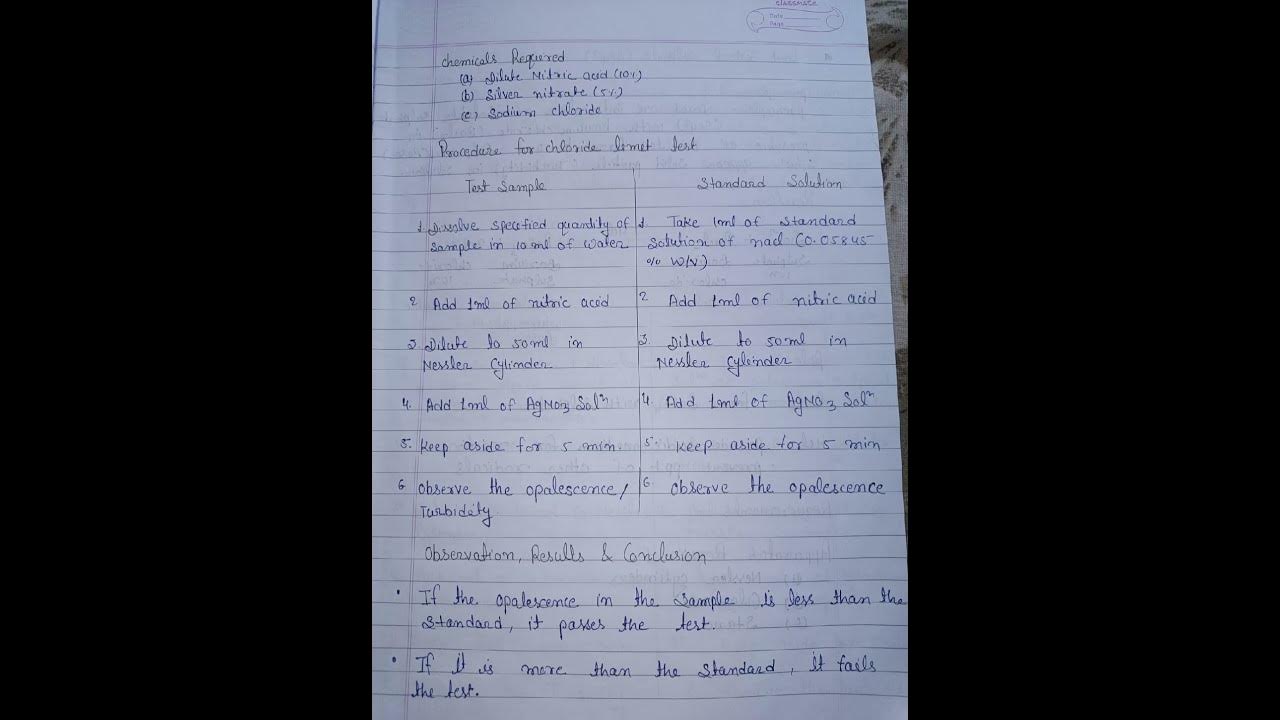 classmate
Date
Page
Chemicals Required
(a) Dilute Nitric acid (10%)
(b) Silver nitrate (5%)
(c) Sodium chloride
Procedure for chloride limit test
Test Sample
1 Dissolve specified quantity of
sample in 10 ml of water
2 Add 1ml of nitric acid
3 Dilute to 50ml in
Nessler Cylinder
4. Add 1ml of AgNO3 Solⁿ
5. Keep aside for 5 min.
6 Observe the opalescence/
Turbidity
Standard Solution
1 Take 1ml of Standard
Solution of nacl (0.05845
% W/V)
2 Add 1ml of nitric acid
3 Dilute to 50ml in
Nessler Cylinder
4. Add 1ml of AgNO3 Solⁿ
5. Keep aside for 5 min
6 Observe the opalescence
Observation, Results & Conclusion
• If the opalescence in the Sample is less than the
Standard, it passes the test.
• If it is more than the Standard, it fails
the test.